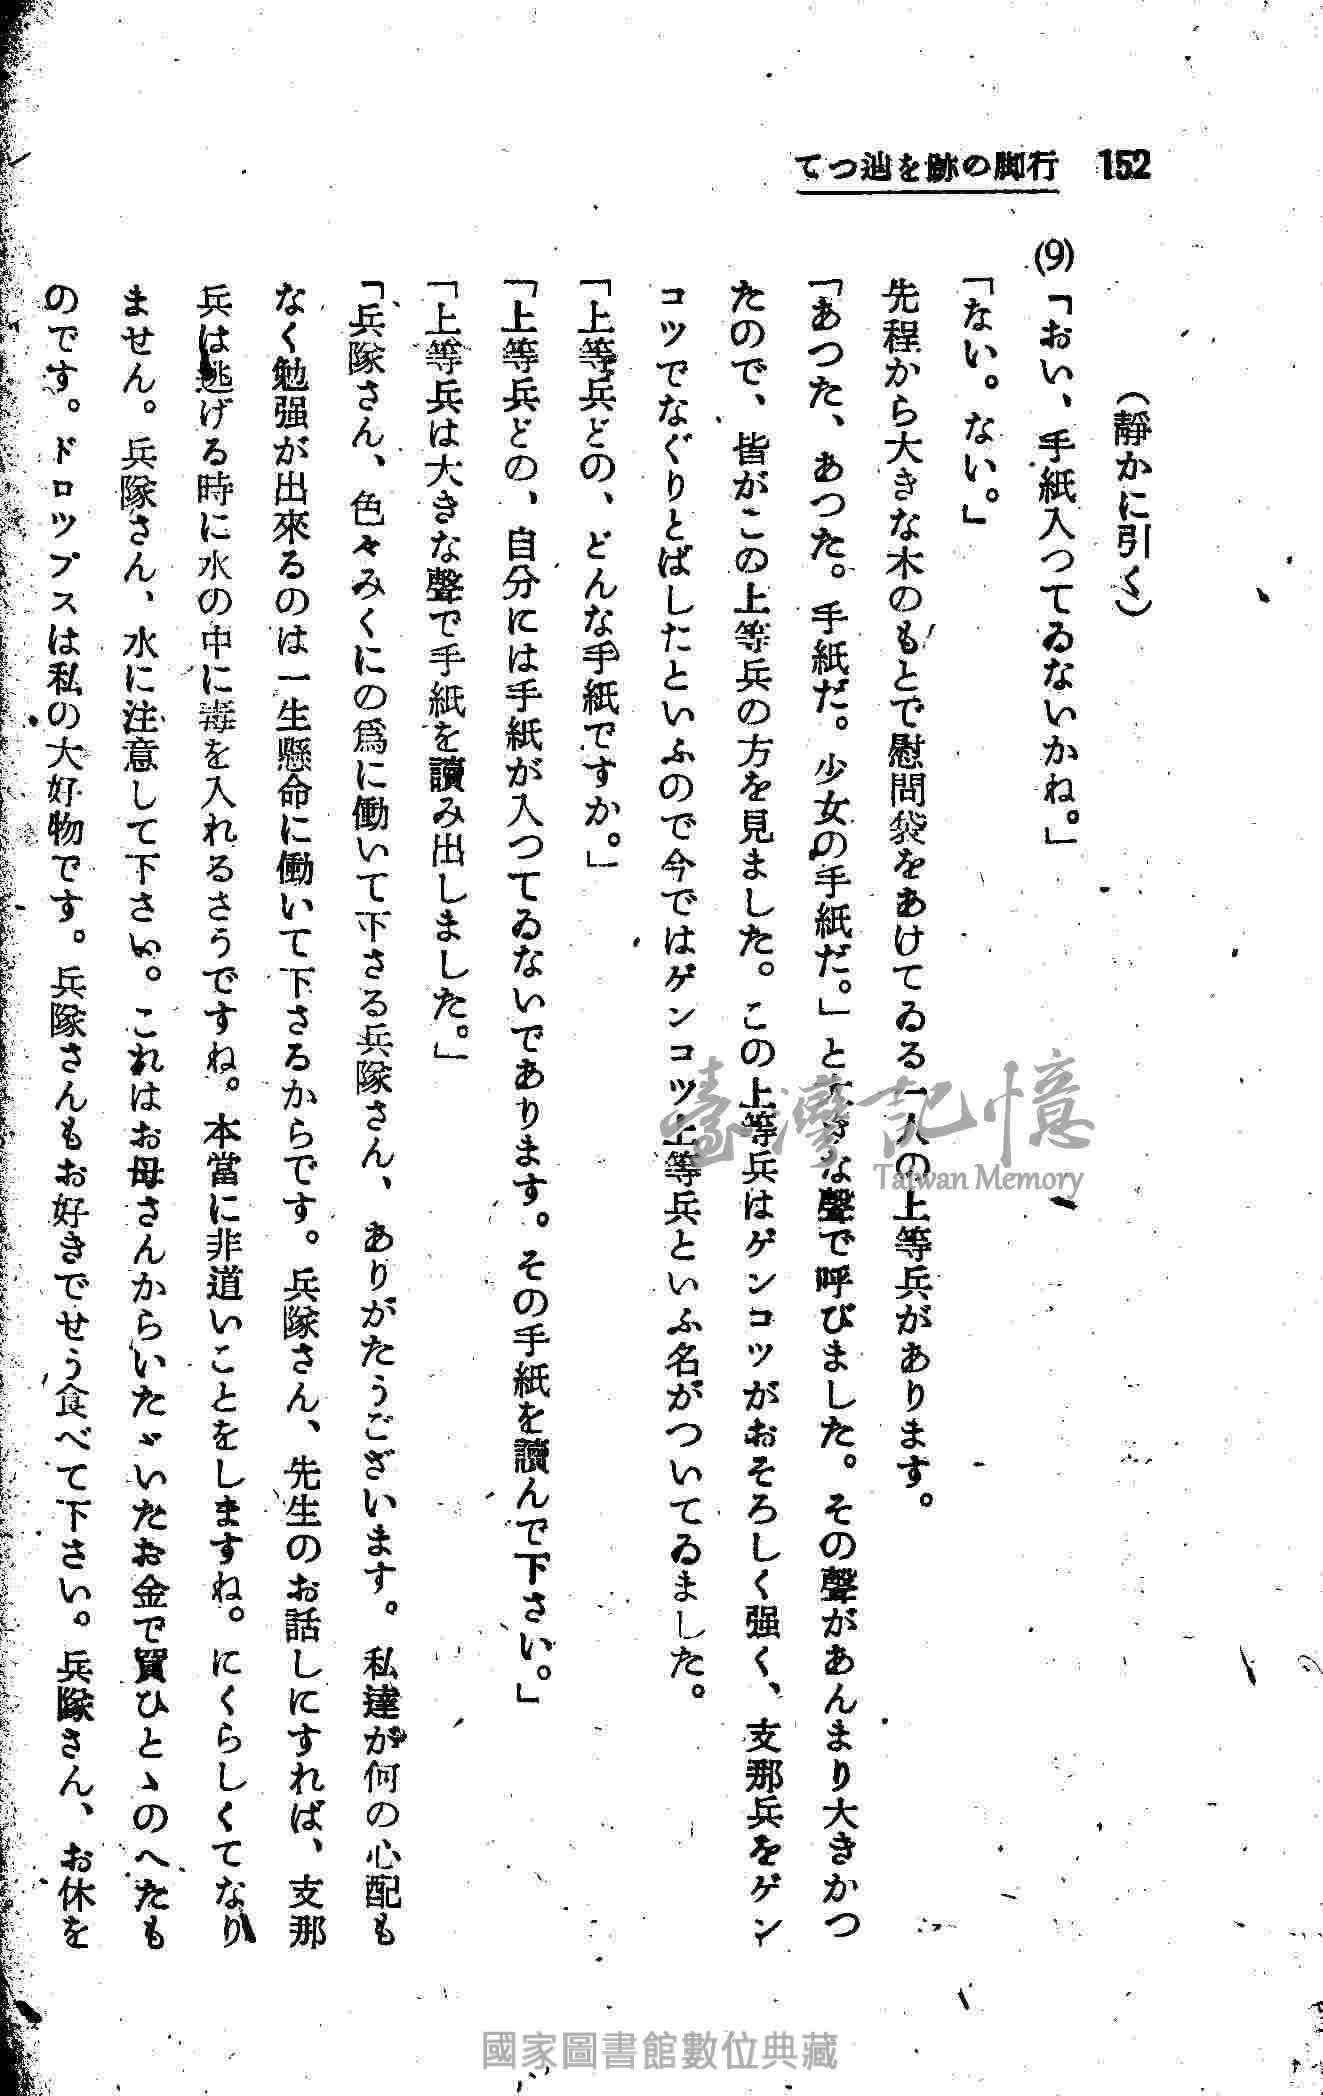 152 行脚の跡を辿つて
(靜かに引く)
(9)「おい、手紙入つてゐないかね。」
「ない。ない。」
先程から大きな木のもとで慰問袋をあけてゐる一人の上等兵があります。
「あつた、あつた。手紙だ。少女の手紙だ。」と大きな聲で呼びました。その聲があんまり大きかつ
たので、皆がこの上等兵の方を見ました。この上等兵はゲンコツがおそろしく强く、支那兵をゲン
コツでなぐりとばしたといふので今ではゲンコツ上等兵といふ名がついてゐました。
「上等兵どの、どんな手紙ですか。」
「上等兵どの、自分には手紙が入つてゐないであります。その手紙を讀んで下さい。」
「上等兵は大きな聲で手紙を讀み出しました。」
「兵隊さん、色々みくにの爲に働いて下さる兵隊さん、ありがたうございます。私達が何の心配も
なく勉强が出來るのは一生懸命に働いて下さるからです。兵隊さん、先生のお話しにすれば、支那
兵は逃げる時に水の中に毒を入れるさうですね。本當に非道いことをしますね。にくらしくてなり
ません。兵隊さん、水に注意して下さい。これはお母さんからいたゞいたお金で買ひとゝのへたも
のです。ドロツプスは私の大好物です。兵隊さんもお好きでせう食べて下さい。兵隊さん、お休を
臺灣記憶
Taiwan Memory
國家圖書館數位典藏